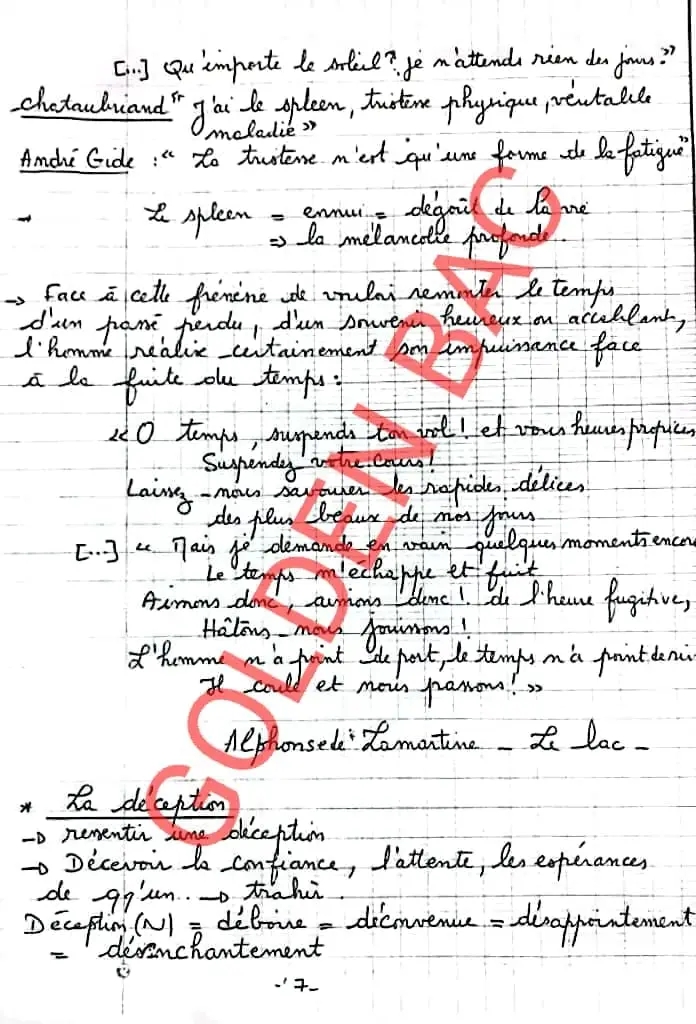 [...] Qu'importe le soleil? je n'attends rien des jours."
Chataubriand "J'ai le spleen, tristesse physique, véritable
maladie"
André Gide : "La tristesse n'est qu'une forme de la fatigue"
→ Le spleen = ennui = dégoût de la vie
⇒ la mélancolie profonde.
→ Face à cette frénésie de vouloi remonter le temps
d'un passé perdu, d'un souvenir heureux ou accablant,
l'homme réalise certainement son impuissance face
à la fuite du temps :
« O temps, suspends ton vol ! et vous heures propices
Suspendez votre cours !
Laissez-nous savourer les rapides délices
des plus beaux de nos jours
[...] " Mais je demande en vain quelques moments encore
Le temps m'échappe et fuit
Aimons donc, aimons donc ! de l'heure fugitive,
Hâtons-nous jouissons !
L'homme n'a point de port, le temps n'a point de ri
Il coule et nous passons ! »
Alphonse de Lamartine - Le lac -
* La déception
→ ressentir une déception
→ Décevoir la confiance, l'attente, les espérances
de qq'un.. → trahir.
Déception (N) = déboire = déconvenue = désappointement
= désenchantement
-7-
GOLDEN BAC